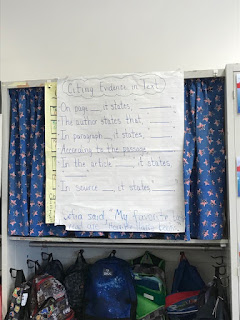 (Citing Evidence in Text)
On page __, it states, ____
The author states that, ____
In paragraph __, it states, ____
According to the passage, ____
In the article ____, it states,
____
In source __, it states ____
said, "My favorite